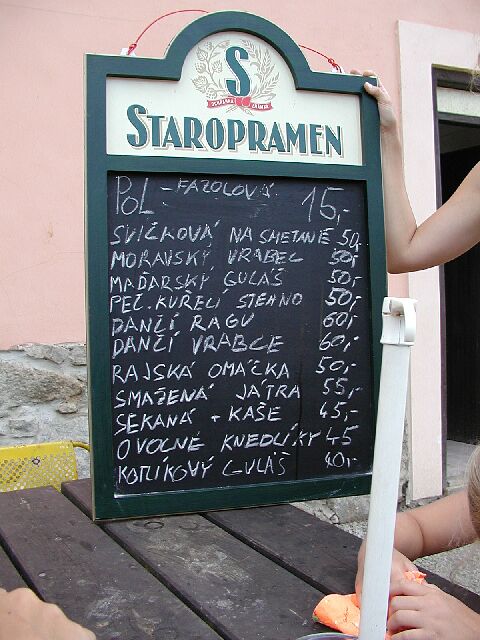 STAROPRAMEN
POL - FAZOLOVÁ 15,-
SVÍČKOVÁ NA SMETANĚ 50,-
MORAVSKÝ VRABEC 50,-
MAĎARSKÝ GULÁŠ 50,-
PEČ. KUŘECÍ STEHNO 50,-
DANČÍ RAGU 60,-
DANČÍ VRABCE 60,-
RAJSKÁ OMÁČKA 50,-
SMAŽENÁ JÁTRA 55,-
SEKANÁ + KAŠE 45,-
OVOCNÉ KNEDLÍKY 45
KOTLÍKOVÝ GULÁŠ 40,-